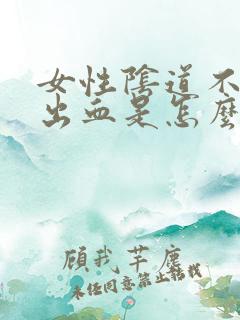 女性陰道不
出血是怎麼
顧我芊塵
未經同意禁止轉載